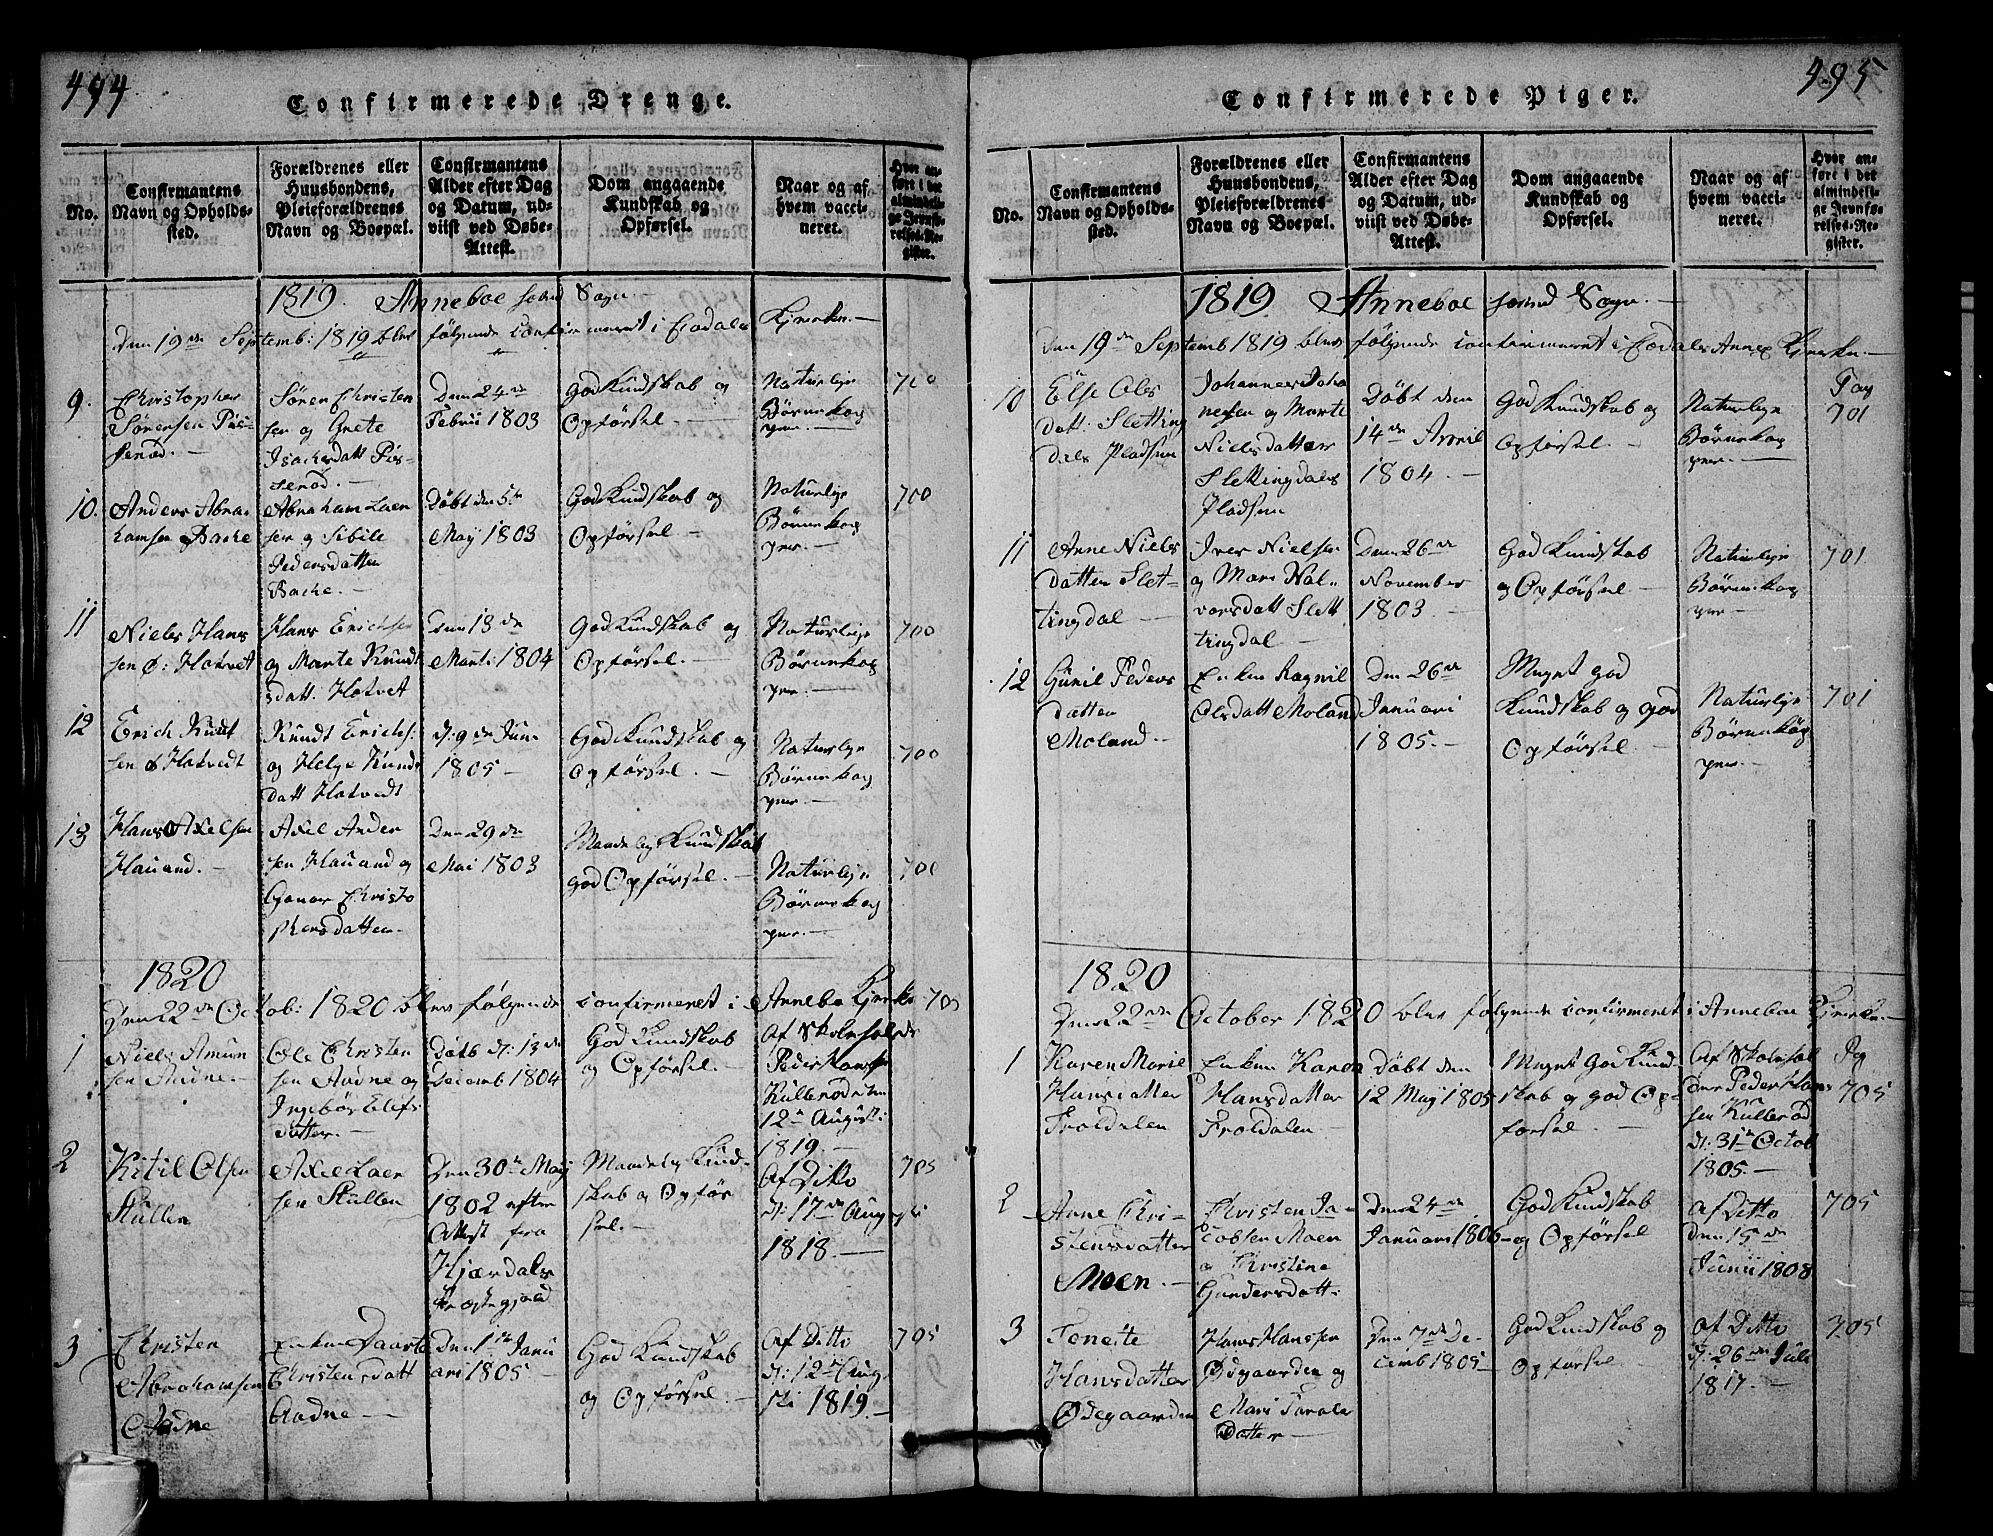 494
Confirmerede Drenge.
No.
Confirmantens Navn og Opholds-sted.
Forældrenes eller Huusbondens, Pleieforældrenes Navn og Boepæl.
Confirmantens Alder efter Dag og Datum, ud-viist ved Døbe-Attest.
Dom angaaende Kundskab og Opførsel.
Naar og af hvem vacci-neret.
Hvor an-ført i det almindeli-ge Jevnfø-relses-Re-gister.
1819. Anneboe Sogn
Den 19de Septemb: 1819 blev følgende confirmeret i Kjerke.
9.
Christopher
Sørensen
Søren Christen
sen og Grete
Isachsdatt
Den 24de
Februi 1803
God Kundskab og
Opførsel. —
Naturlige
Børnekop
per. —
700
10.
Anders Abra-
hamsen Bache
Abraham Laer
sen og Sibile
Pedersdatter
Bache. —
Døbt den 5te
May 1803
God Kundskab og
Opførsel. —
Naturlige
Børnekop
per. —
700
11
Niels Hans
sen Ø: Hotvet
Hans Erichsen
og Marte Knudt
sdatt. Hotvet
Den 13de
Marti: 1804
God Kundskab og
Opførsel. —
Naturlige
Børnekop
per. —
700
12
Erich Knudt
sen Ø Hotvedt
Knudt Erichs:
og Helge Knuds
datt Hotvedt
d: 9de Jun.
1805 —
God Kundskab og
Opførsel. —
Naturlige
Børnekop
per. —
700
13
Hans Axelsen
Hauand. —
Axel Ander
sen Hauand og
Gunor Christo
phersdatter.
Den 29de
Mai 1803
Maadelig Kundskab
god Opførsel. —
Naturlige
Børnekop
per. —
700
1820
Den 22de Octob: 1820 blev følgende confirmeret i Annebo Kjerke
705
1
Niels Amun
sen Aadne. —
Ole Christen
sen Aadne og
Ingebör Elefs
datter. —
Døbt d: 13de
Decemb 1804
God Kundskab
og Opførsel. —
Af Skoleholder
Peder Hansen
Kullerød den
12te August:
1819. —
2
Kitil Olsen
Skullen
Axel Laer
sen Skullen
Den 30te May
1802 efter
Attest fra
Hjærdals
Præstegjæld
Maadelig Kund-
skab og Opfør
sel. —
Af Ditto
d: 17de Augusti
1818. —
705
3
Christen
Abrahamsen
Aadne
Enken Daarte
Christensdatt
Aadne —
Den 1ste Janu
ari 1805 —
God Kundskab
og Opførsel. —
Af Ditto
d: 12te Aug
sti 1819. —
705
495
Confirmerede Piger.
No.
Confirmantens Navn og Opholds-sted.
Forældrenes eller Huusbondens, Pleieforældrenes Navn og Boepæl.
Confirmantens Alder efter Dag og Datum, ud-viist ved Døbe-Attest.
Dom angaaende Kundskab og Opførsel.
Naar og af hvem vacci-neret.
Hvor an-ført i det almindeli-ge Jevnfø-relses-Re-gister.
1819 Anneboe Sogn. —
Den 19de Septemb 1819 blev følgende confirmeret i Annex Kjerke. —
10
Else Oles
datt: Sletting
dals Pladsen
Johannes Joha
nesen og Marte
Nielsdatter
Slettingdals
Pladsen
Døbt den
14de April
1804. —
God Kundskab og
Opførsel. —
Naturlige
Børnekop
per. —
Pag
701
11
Anne Niels
datter Slet-
tingdal —
Iver Nielsen
og Mari Hal-
vorsdatt Slett
tingdal —
Den 26de
November
1803. —
God Kundskab
og Opførsel —
Naturlige
Børnekop
per —
701
12
Gunil Peders
datter
Moland. —
Enken Ragnil
Olsdatt Moland
Den 26de
Januari
1805. —
Meget god
Kundskab og god
Opførsel. —
Naturlige
Børnekop
per. —
701
1820
Den 22de October 1820 blev følgende confirmeret i Anneboe Kjerke. —
1
Karen Marie
Hansdatter
Froldalen
Enken Karen
Hansdatter
Froldalen —
Døbt den
12 May 1805
Meget God Kund
skab og god Op-
førsel. —
Af Skolehol
der Peder Han
sen Kullerød
d: 31te Octob
1805. —
Pag
705
2
Anne Chri-
stensdatter
Moen. —
Christen Ja-
cobsen Moen
og Christine
Gundersdatt.
Den 24de
Januari 1806
God Kundskab
og Opførsel
Af Ditto
den 15de
Junii 1808
705
3
Teneite
Hansdatter
Ødegaarden
Hans Hansen
Ødegaarden og
Mari
datter
Den 7de De-
cemb 1805
God Kundskab og
Opførsel
Af Ditto
d: 26de Juli
1817. —
705